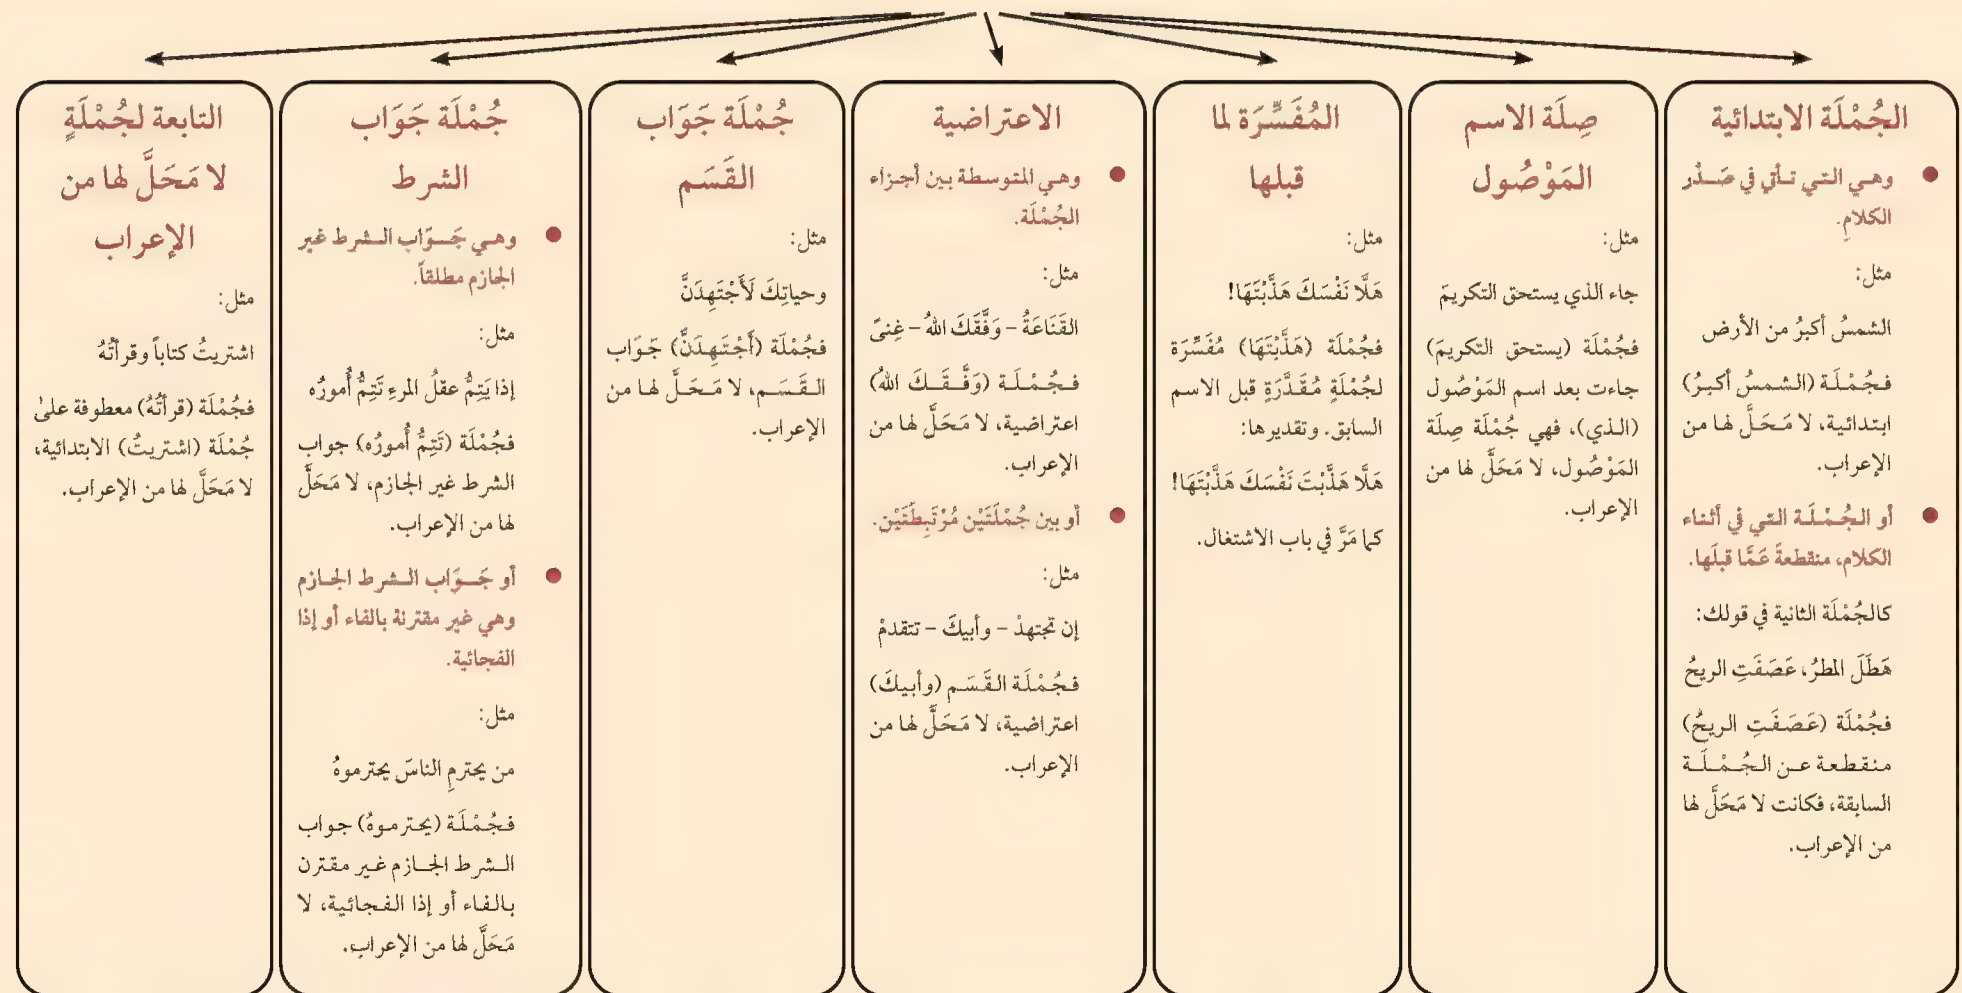 الجُمْلَة الابتدائية
وهي التي تأتي في صَدْر
الكلامِ.
مثل:
الشمسُ أكبرُ من الأرض
فجُمْلَة (الشمسُ أكبرُ)
ابتدائية، لا مَحَلَّ لها من
الإعراب.
أو الجُمْلَة التي في أثناء
الكلام، منقطعةً عَمَّا قبلَها.
كالجُمْلَة الثانية في قولك:
هَطَلَ المطرُ، عَصَفَتِ الريحُ
فجُمْلَة (عَصَفَتِ الريحُ)
منقطعة عن الجُمْلَة
السابقة، فكانت لا مَحَلَّ لها
من الإعراب.
صِلَة الاسم
المَوْصُول
مثل:
جاء الذي يستحق التكريمَ
فجُمْلَة (يستحق التكريمَ)
جاءت بعد اسم المَوْصُول
(الذي)، فهي جُمْلَة صِلَة
المَوْصُول، لا مَحَلَّ لها من
الإعراب.
المُفَسِّرَة لما
قبلها
مثل:
هَلَّا نَفْسَكَ هَذَّبْتَهَا!
فجُمْلَة (هَذَّبْتَهَا) مُفَسِّرَة
لجُمْلَةٍ مُقَدَّرَةٍ قبل الاسم
السابق. وتقديرها:
هَلَّا هَذَّبْتَ نَفْسَكَ هَذَّبْتَهَا!
كما مَرَّ في باب الاشتغال.
الاعتراضية
وهي المتوسطة بين أجزاء
الجُمْلَة.
مثل:
القَنَاعَةُ – وَفَّقَكَ اللهُ – غِنىً
فجُمْلَة (وَفَّقَكَ اللهُ)
اعتراضية، لا مَحَلَّ لها من
الإعراب.
أو بين جُمْلَتَيْن مُرْتَبِطَتَيْن.
مثل:
إن تجتهدْ – وأبيكَ – تتقدمْ
فجُمْلَة القَسَم (وأبيكَ)
اعتراضية، لا مَحَلَّ لها من
الإعراب.
جُمْلَة جَوَاب
القَسَم
مثل:
وحياتِكَ لَأَجْتَهِدَنَّ
فجُمْلَة (أَجْتَهِدَنَّ) جَوَاب
القَسَم، لا مَحَلَّ لها من
الإعراب.
جُمْلَة جَوَاب
الشرط
وهي جَوَاب الشرط غير
الجازم مطلقاً.
مثل:
إذا يَتِمُّ عقلُ المرءِ تَتِمُّ أُمورُه
فجُمْلَة (تَتِمُّ أُمورُه) جواب
الشرط غير الجازم، لا مَحَلَّ
لها من الإعراب.
أو جَوَاب الشرط الجازم
وهي غير مقترنة بالفاء أو إذا
الفجائية.
مثل:
من يحترمِ الناسَ يحترموهُ
فجُمْلَة (يحترموهُ) جواب
الشرط الجازم غير مقترن
بالفاء أو إذا الفجائية، لا
مَحَلَّ لها من الإعراب.
التابعة لجُمْلَةٍ
لا مَحَلَّ لها من
الإعراب
مثل:
اشتريتُ كتاباً وقرأتُهُ
فجُمْلَة (قرأتُهُ) معطوفة علىٰ
جُمْلَة (اشتريتُ) الابتدائية،
لا مَحَلَّ لها من الإعراب.